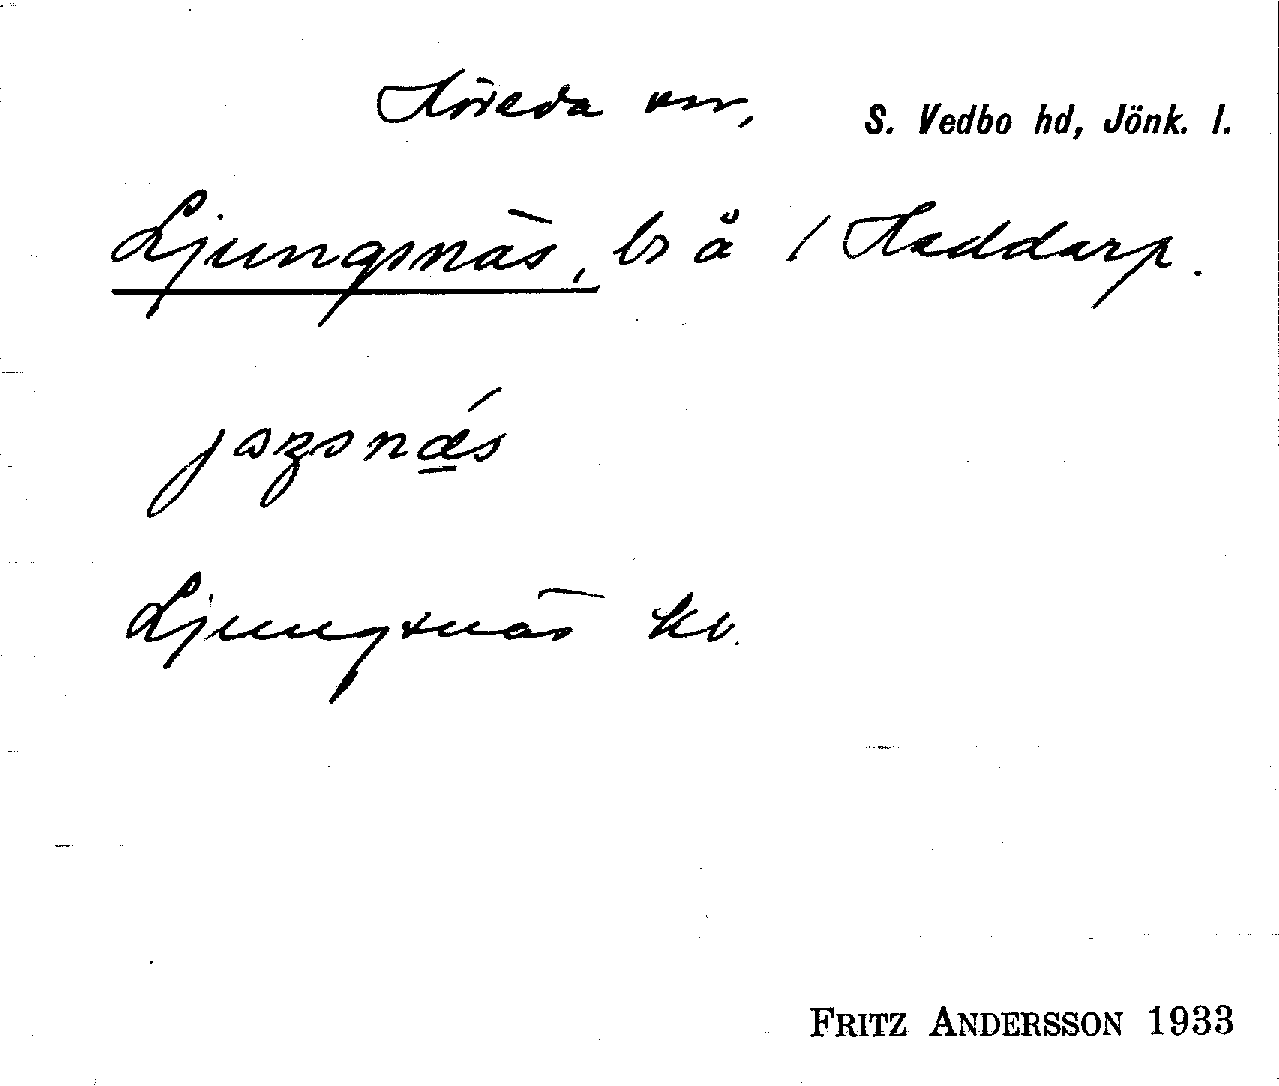 Höreda sn, S. Vedbo hd, Jönk. l.
Ljungsnäs, ls å 1 Haddarp.
Ljungsnäs kv.
FRITZ ANDERSSON 1933